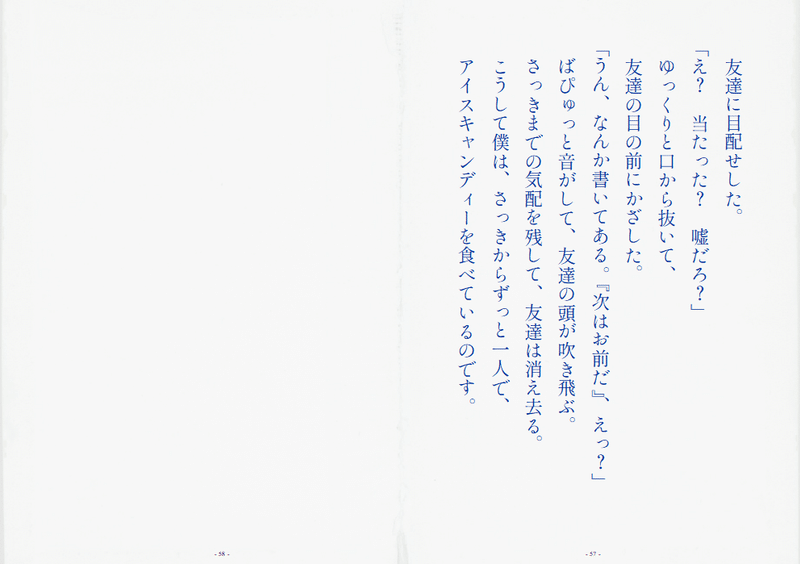 友達に目配せした。
「え？　当たった？　嘘だろ？」
ゆっくりと口から抜いて、
友達の目の前にかざした。
「うん、なんか書いてある。『次はお前だ』、えっ？」
ばぴゅっと音がして、友達の頭が吹き飛ぶ。
さっきまでの気配を残して、友達は消え去る。
こうして僕は、さっきからずっと一人で、
アイスキャンディーを食べているのです。
- 57 -
- 58 -